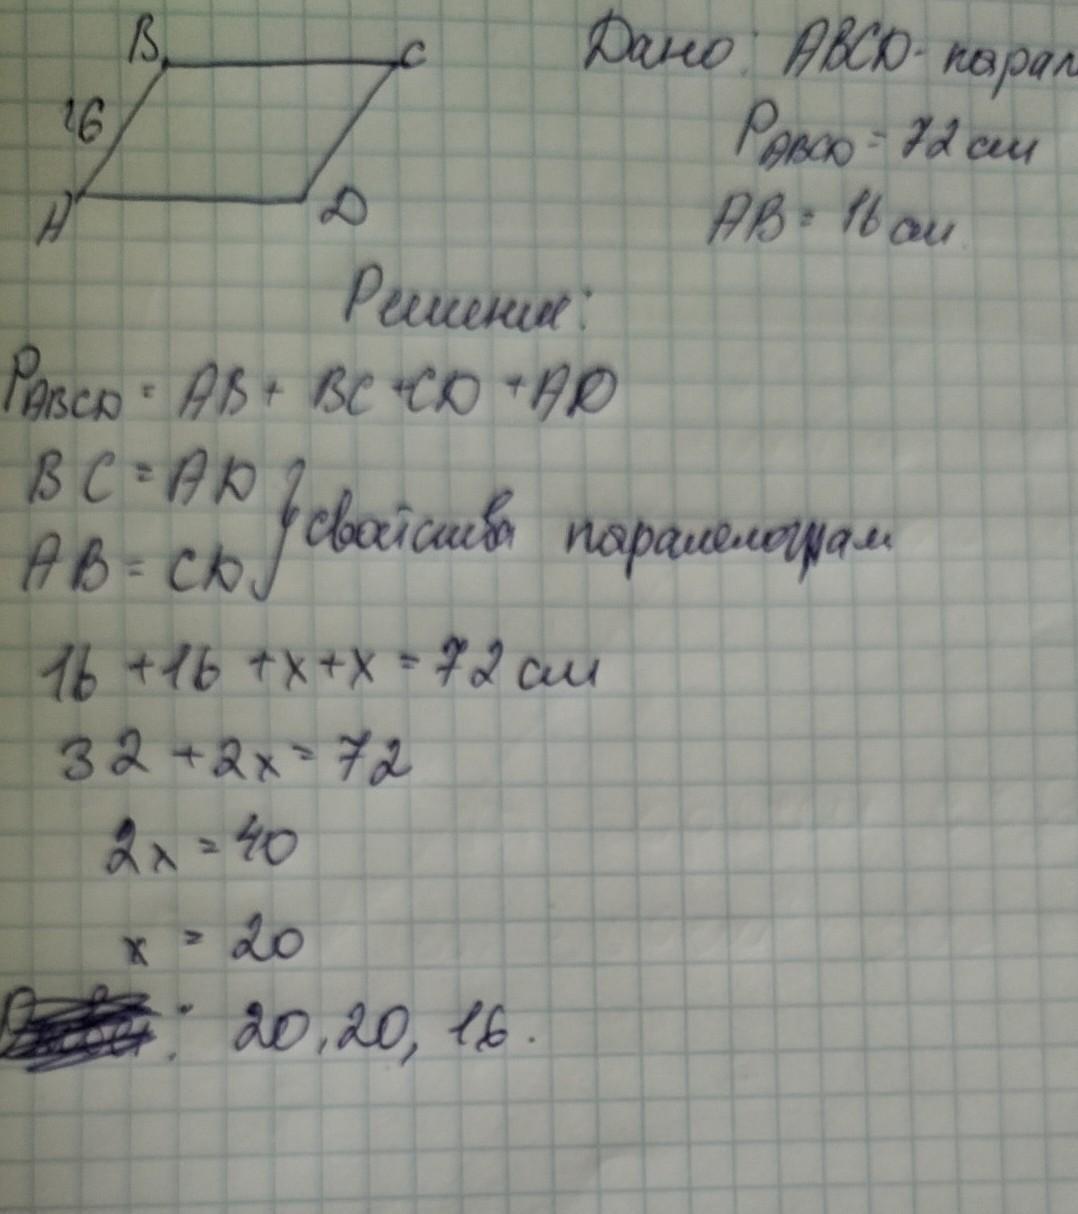 B
C
16
A
D
Дано: ABCD - парал
PABCD = 72 см
AB = 16 см
Решение:
PABCD = AB + BC + CD + AD
BC = AD
AB = CD
свойства паралелограм
16 + 16 + x + x = 72 см
32 + 2x = 72
2x = 40
x = 20
: 20, 20, 16.